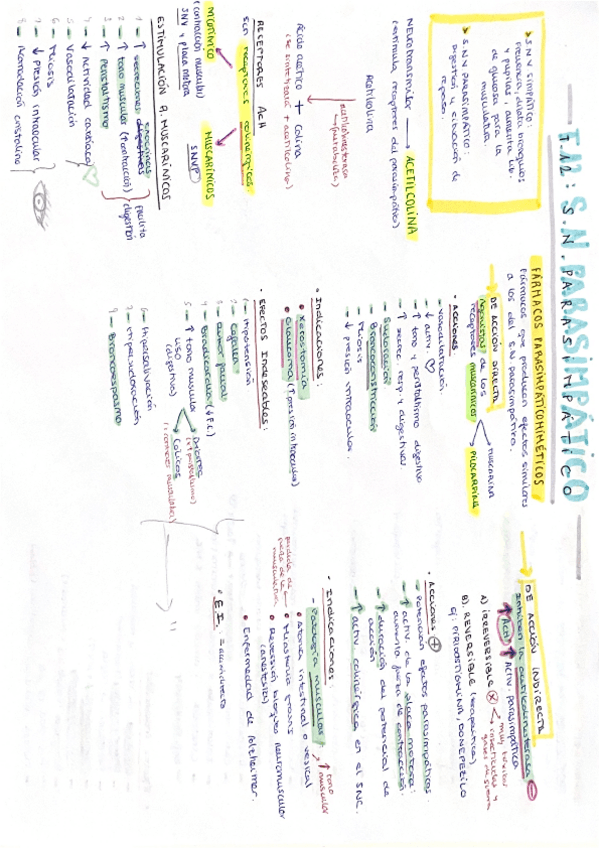 T.12: S.N. PARASIMPÁTICO
S.N. PARASIMPÁTICO
> S.N.V SIMPÁTICO:
musculatura.
> S.N.V PARASIMPÁTICO:
digestión y situación de
reposo.
NEUROTRANSMISOR → ACETILCOLINA
(estimula receptores del parasimpático)
Acetilcolina
acetilcolinesterasa
Ácido acético + Colina
RECEPTORES ACH
Son receptores colinérgicos.
NICOTÍNICO
(contracción muscular)
SNV y placa motora
MUSCARÍNICOS
SNVP
ESTIMULACIÓN R. MUSCARÍNICOS
1- ↑ secreciones exocrinas
2- ↑ tono muscular (↑ contracción)
3- ↑ Peristaltismo
facilita digestión
4- ↓ Actividad cardiaca
5- Vasodilatación
6- Miosis
7- ↓ Presión intraocular
8- Acomodación cristalino
FÁRMACOS PARASIMPÁTICOMIMÉTICOS
Fármacos que producen efectos similares
a los del S.N parasimpático.
DE ACCIÓN DIRECTA
Agonistas de los
receptores muscarínicos
MUSCARINA
PILOCARPINA
• Acciones:
- vasodilatación.
- ↓ activ. ♡
- ↑ tono y peristaltismo digestivo
- ↑ secrec. resp y digestivas
- Sudoración
- Broncoconstricción
- Miosis
- ↓ presión intraocular.
• Indicaciones:
• Xerostomía
• Glaucoma (↑ presión intraocular)
• EFECTOS INDESEABLES:
1- Hipotensión
2- Cefalea
4- Bradicardia
5- ↑ tono muscular
liso
(digestivo)
Diarrea
(↑ peristaltismo)
Cólicos
6- Hipersalivación
7- Hipersudoración
9- Broncoespasmo
DE ACCIÓN INDIRECTA
Inhiben la acetilcolinesterasa ⊖
↑ ACH ↑ ACTIV. parasimpática
A) IRREVERSIBLE
muy tóxicos
insecticidas y
B). REVERSIBLE (terapéutica)
ej: PIRIDOSTIGMINA, DONEPEZILO
• Acciones ⊕
- Potencian efectos parasimpáticos.
- ↑ activ. de la placa motora:
aumenta fuerza de contracción.
- ↑ duración del potencial de
acción
- ↑ activ. colinérgica en el SNC.
• Indicaciones:
- Patología muscular
↑ tono muscular
• Atonía intestinal o vesical
• Miastenia gravis
pérdida de fuerza de la musculatura
• Reversión bloqueo neuromuscular
(anestesia)
• Enfermedad de Alzheimer.
• E.I.